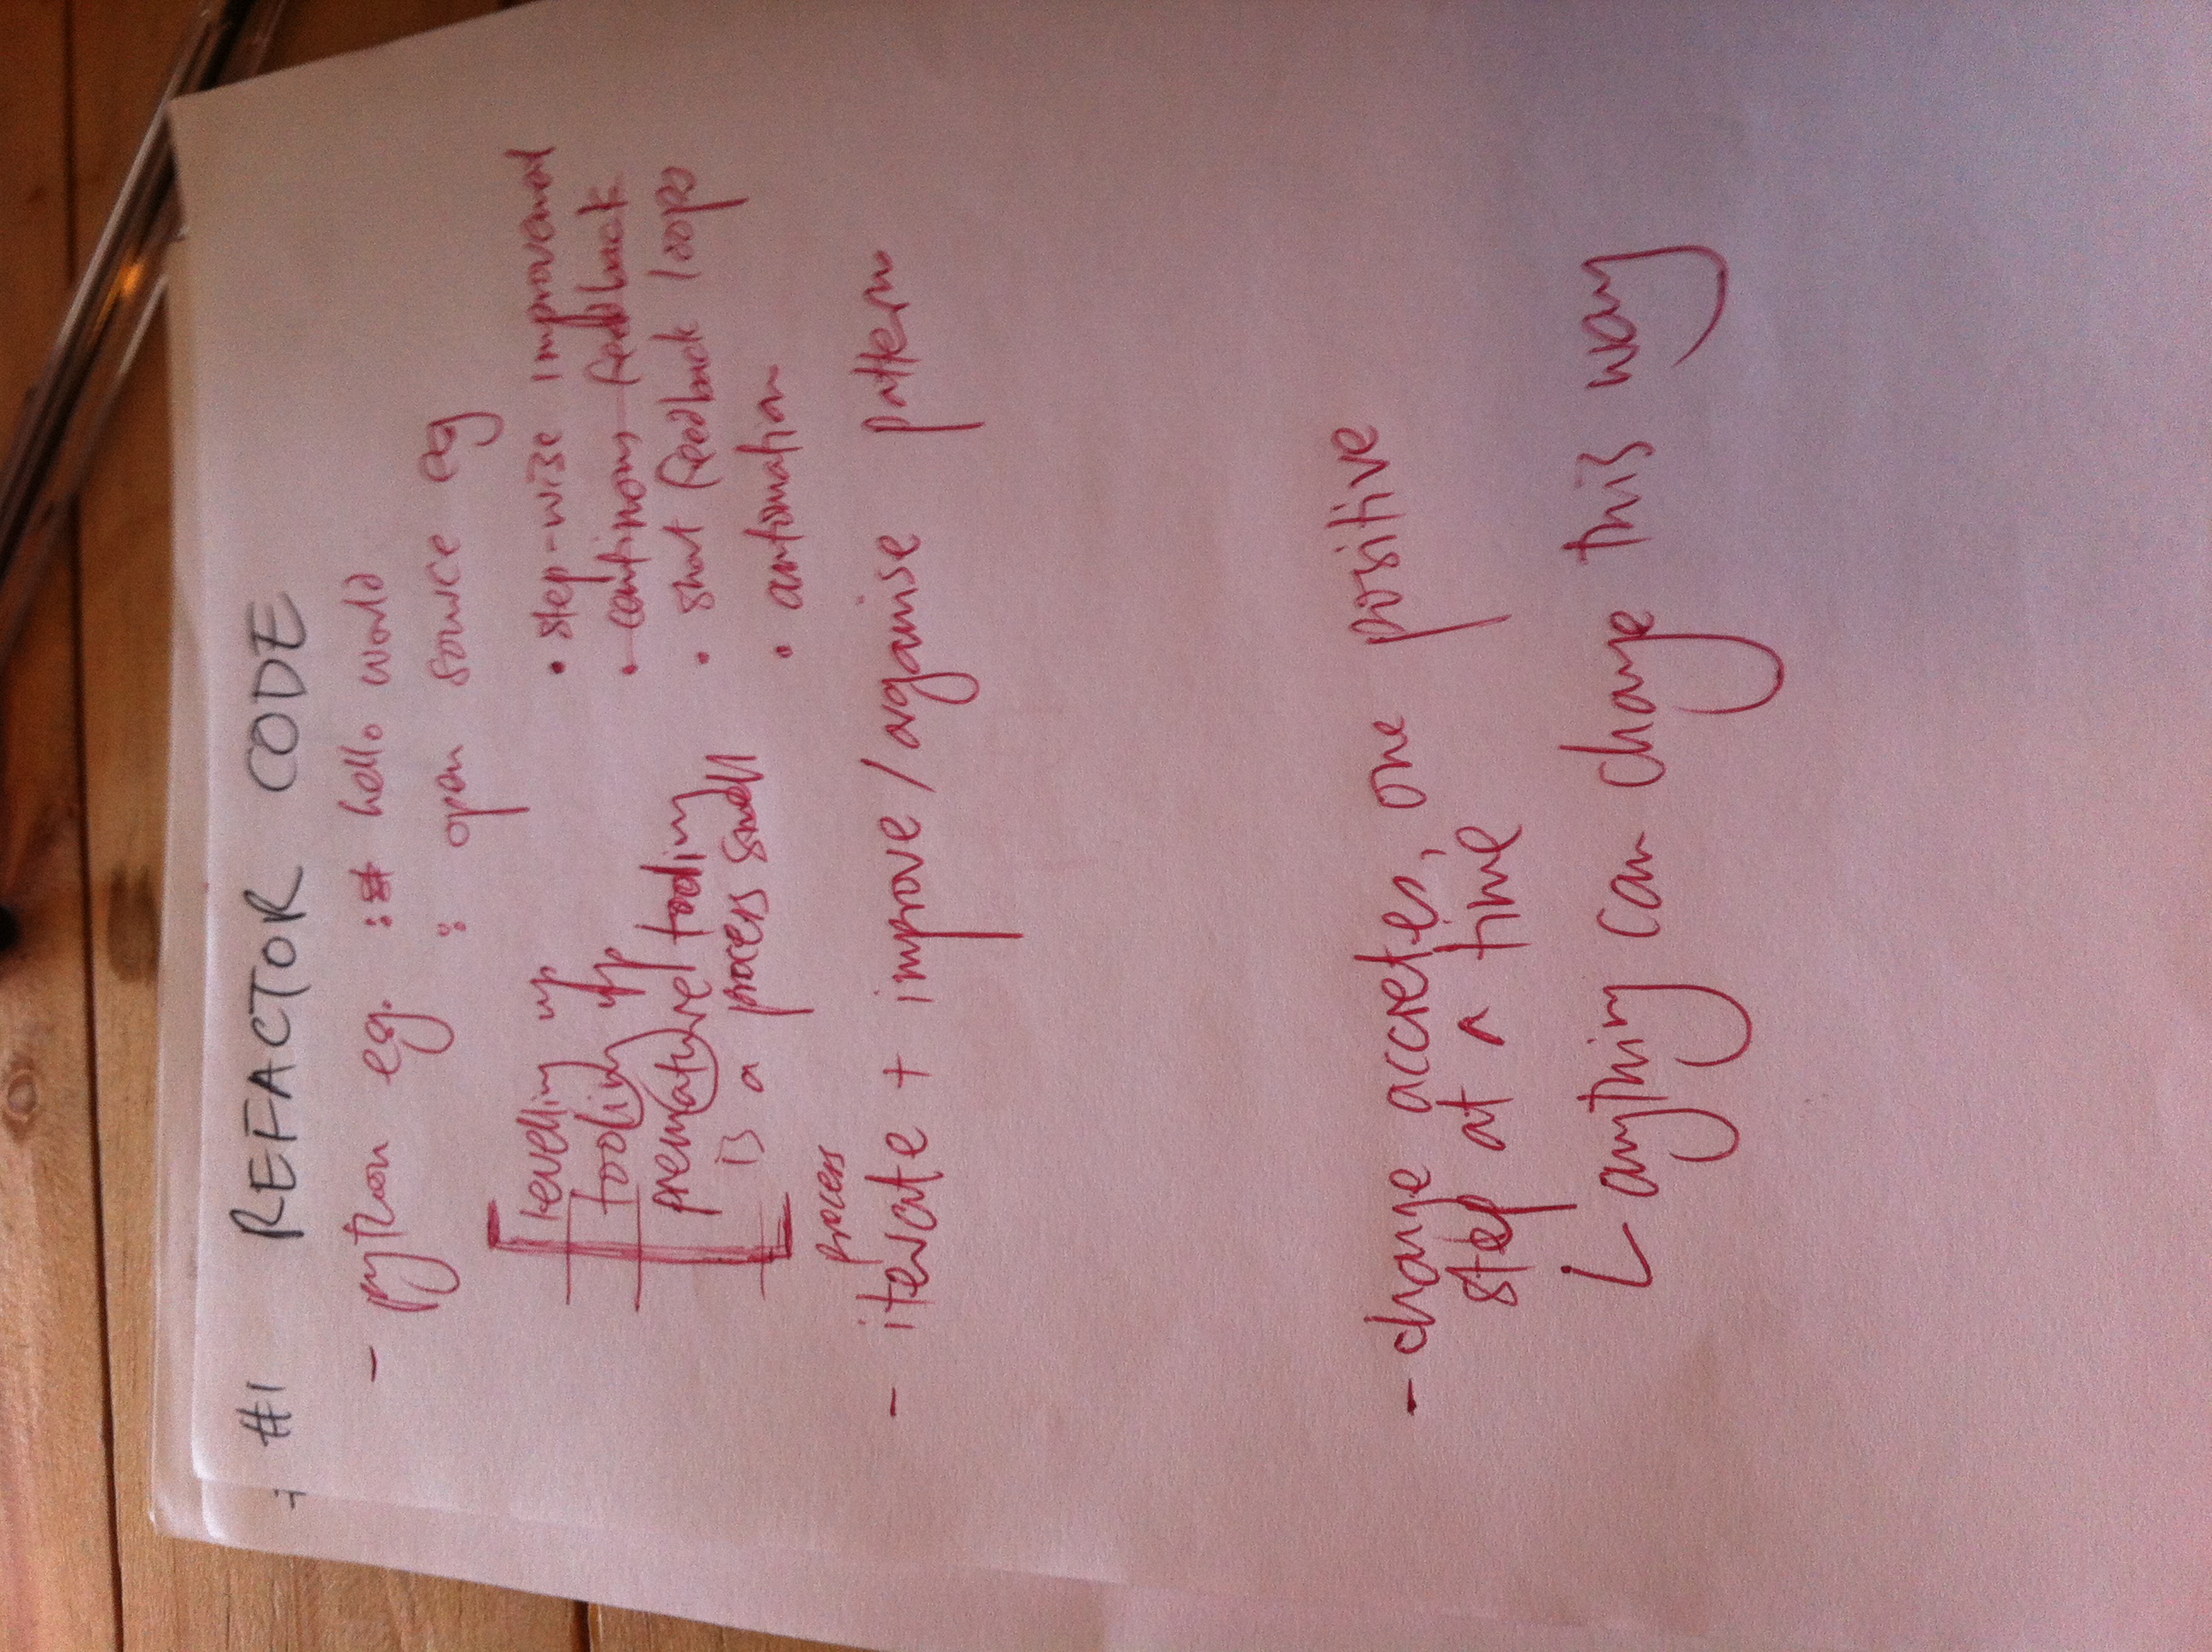 #1 REFACTOR CODE
- python eg. : hello world
: open source eg
levelling up
tooling up
premature tooling
is a process smell
process
• step-wise improvement
• continous feedback
• short feedback loops
• automation
- iterate + improve / organise patterns
- change accretes, one positive
step at a time
anything can change this way